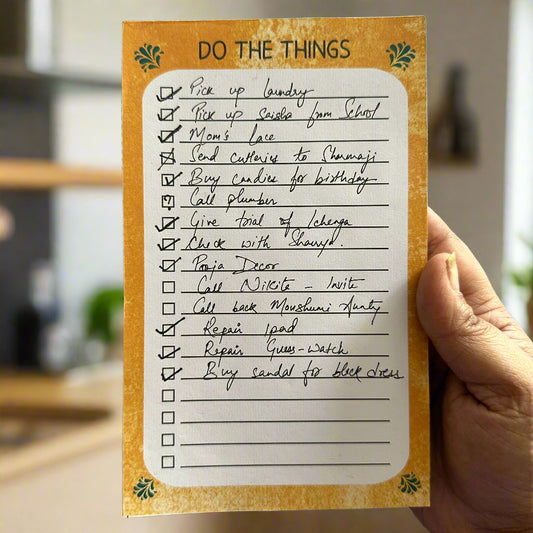 DO THE THINGS
Pick up laundry
Pick up saisha from School
Mom's lace
Send cutleries to Sharmaji
Buy candies for birthday
? Call plumber
Give trial of lehenga
Check with Shaurya.
Pooja Decor
Call Nikita - Invite
Call back Moushumi Aunty
Repair Ipad
Repair Guess-watch
Buy sandal for black dress